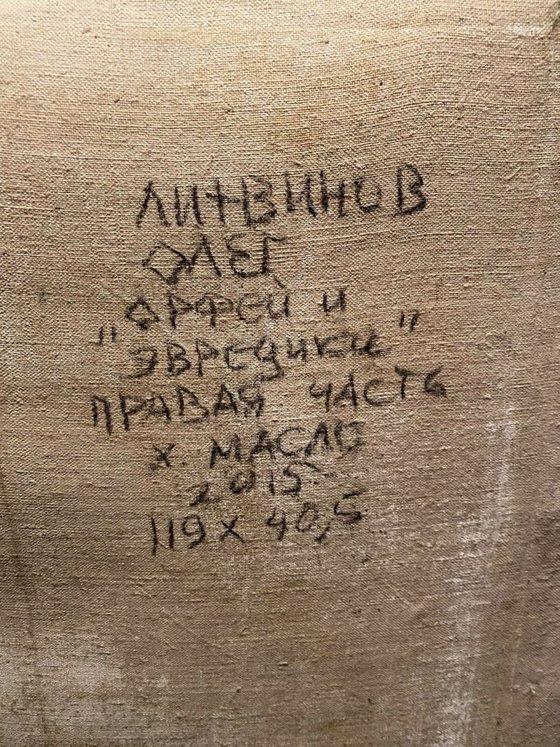 ЛИТВИНОВ
ОЛЕГ
"ОРФЕЙ И
ЭВРЕДИКИ"
ПРАВАЯ ЧАСТЬ
Х. МАСЛО
2015.
119 х 40,5